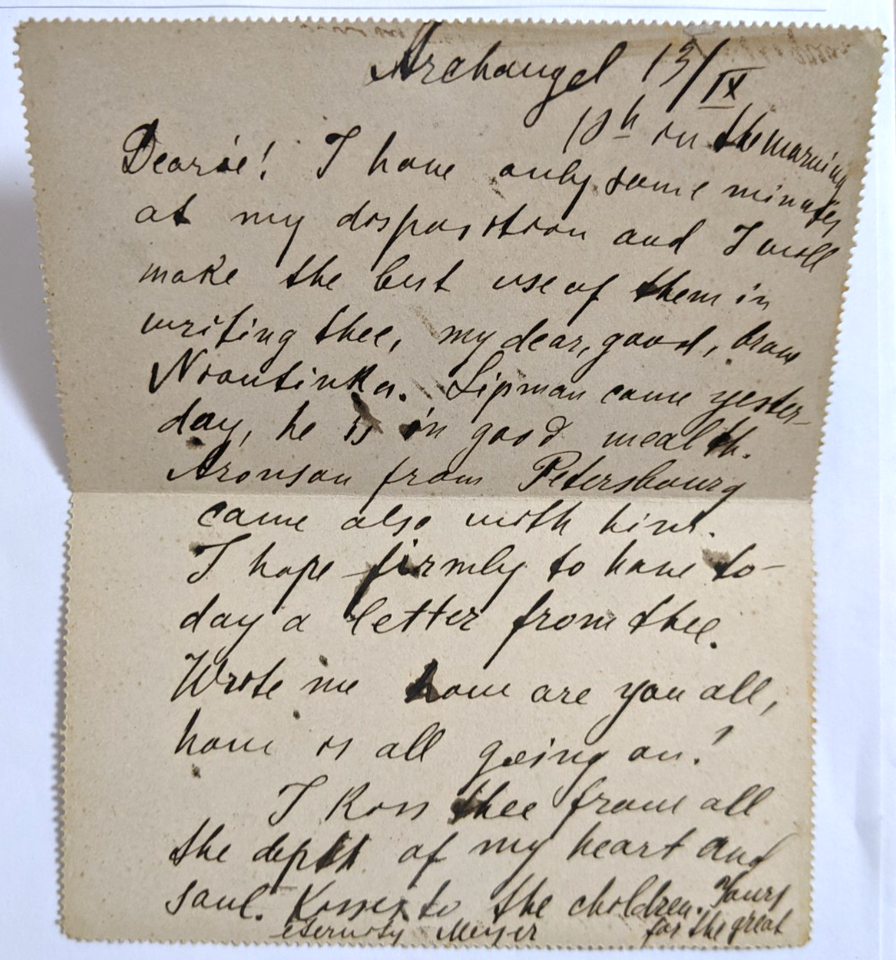 Archangel 13/IX
10h in the morning
Dearie! I have only some minutes
at my disposition and I will
make the best use of them in
writing thee, my dear, good, brave
Niontinka. Lipman came yester-
day, he is in good mealth.
Aronson from Petersbourg
came also with him.
I hope firmly to have to-
day a letter from thee.
Write me how are you all,
how is all going on!
I kiss thee from all
the depth of my heart and
soul. Kisses to the children. Yours
for the great
eternity Meyer